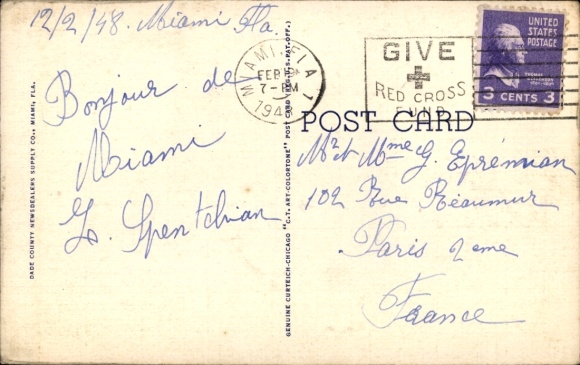 12/2/48. Miami Fla.
Bonjour de
Miami
DADE COUNTY NEWSDEALERS SUPPLY CO., MIAMI, FLA.
GENUINE CURTEICH-CHICAGO "C.T. ART-COLORTONE" POST CARD (REG. U.S. PAT. OFF.)
MIAMI, FLA.
FEB
7-PM
GIVE
RED CROSS
FUND
UNITED
STATES
POSTAGE
THOMAS
JEFFERSON
3 CENTS 3
POST CARD
Mr et Mme G. Eprémian
102 Rue Réaumur
Paris 2eme
France